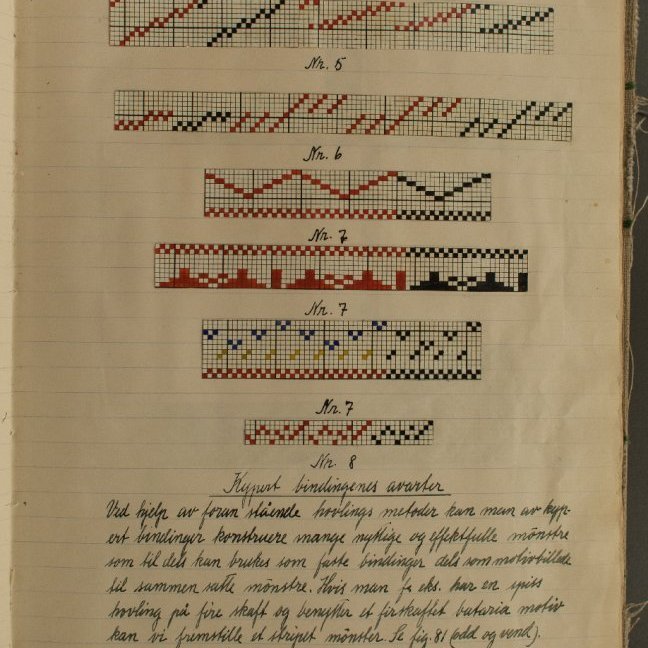 Nr. 5
Nr. 6
Nr. 7
Nr. 7
Nr. 7
Nr. 8
Kypert bindingenes avarter
Ved hjelp av foran stående hovlings metoder kan man av kyp-
ert bindinger konstruere mange nyttige og effektfulle mönstre
som til dels kan brukes som faste bindinger dels som motivbillede
til sammen satte mönstre. Hvis man f. eks. har en spiss
hovling på fire skaft og benytter et firskaftet batavia motiv
kan vi fremstille et stripet mönster. Se fig. 81 (odd og vend).